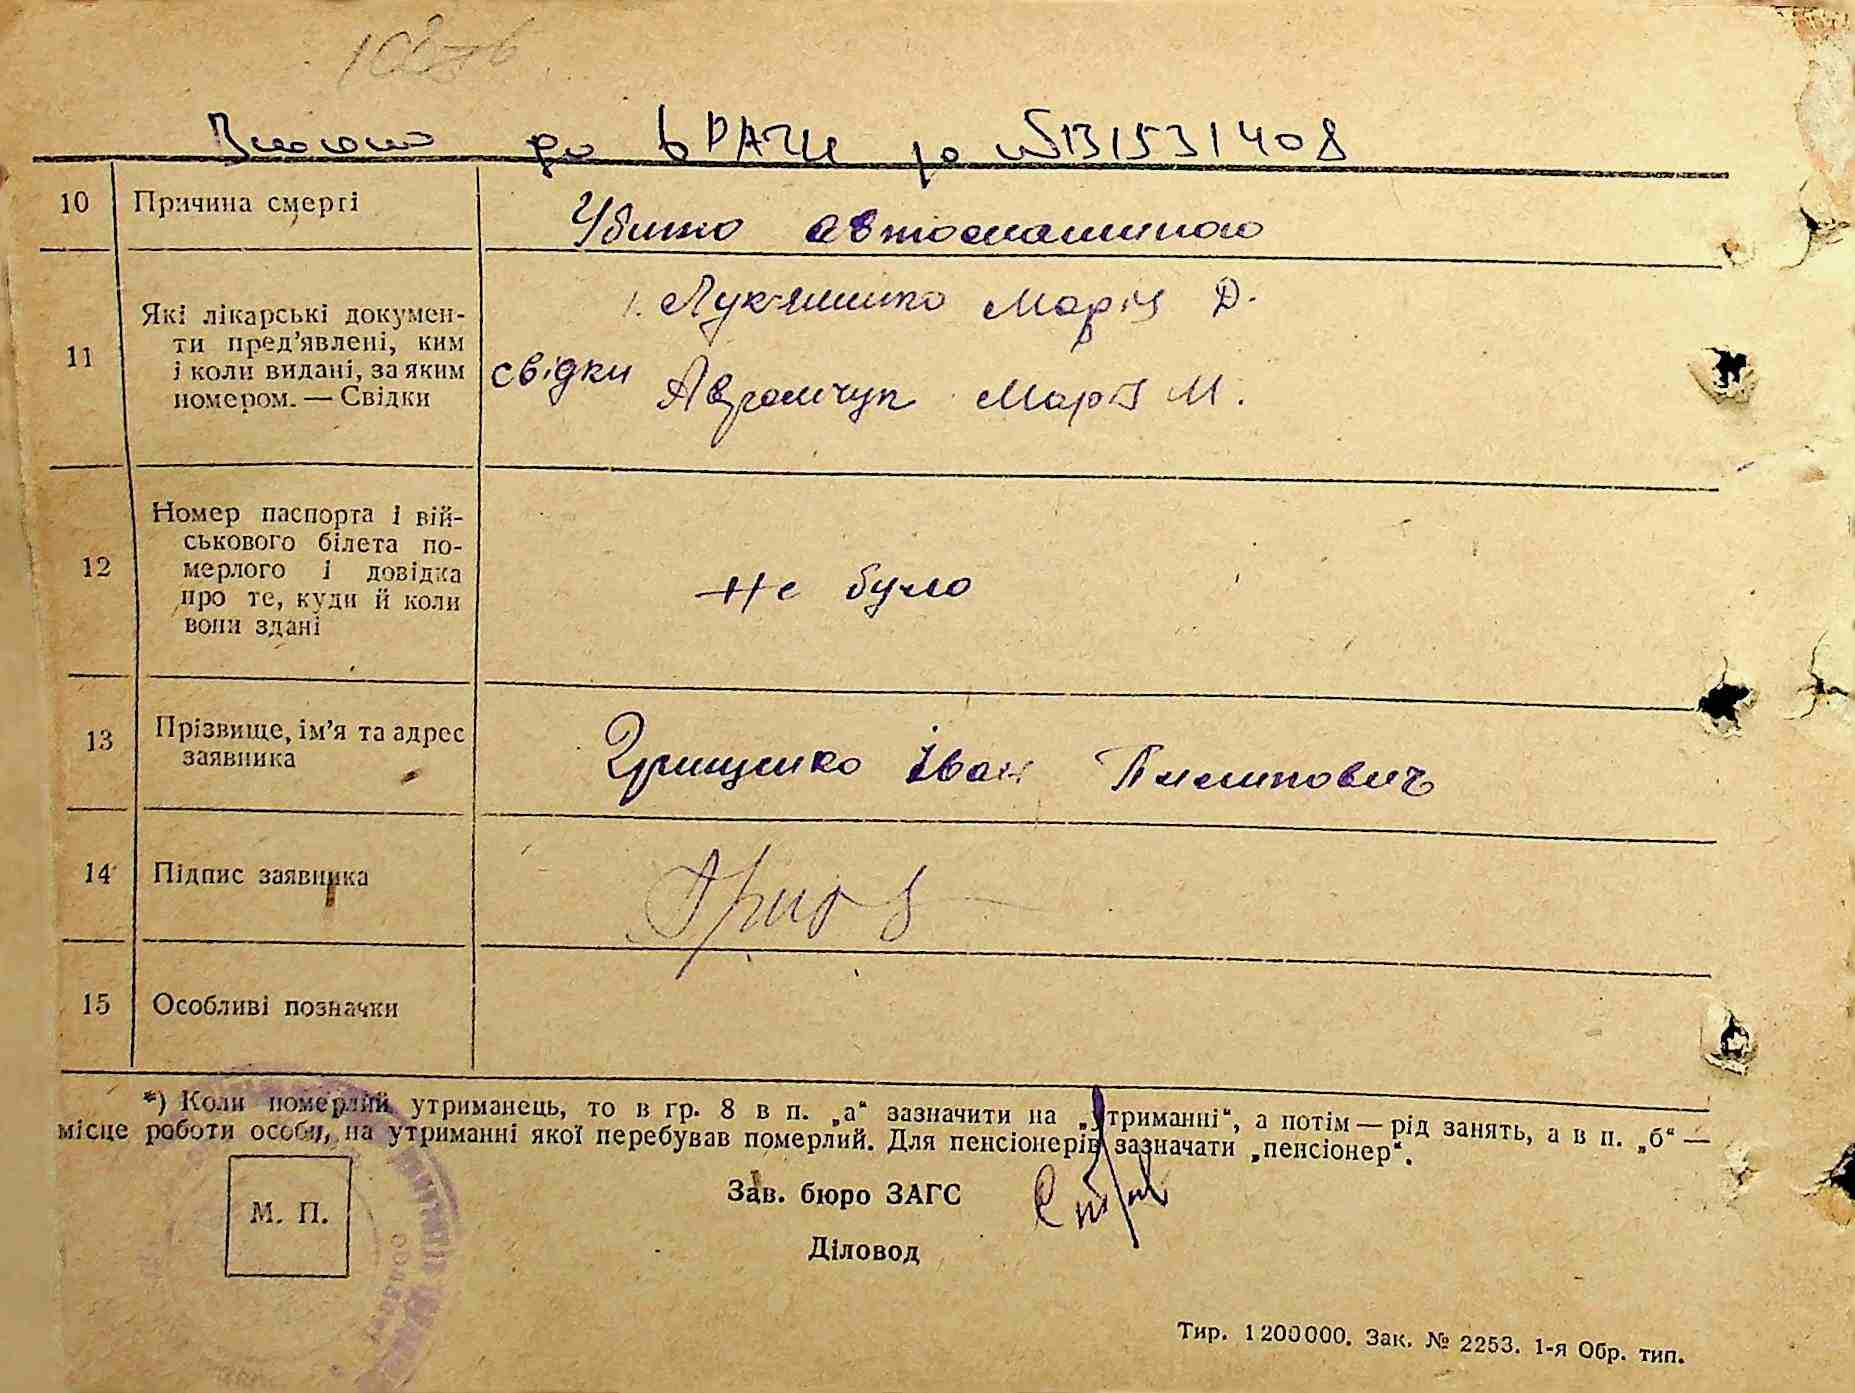 Внесено до ДРАЦС за №131531408
10 Причина смерті Убито автомашиною
11 Які лікарські документи пред'явлені, ким і коли видані, за яким номером. — Свідки
1. Лук'яненко Марія Д.
свідки Аврамчук Марія М.
12 Номер паспорта і військового білета померлого і довідка про те, куди й коли вони здані Не було
13 Прізвище, ім'я та адрес заявника Грищенко Іван Пилипович
14 Підпис заявника
15 Особливі позначки
*) Коли померлий утриманець, то в гр. 8 в п. „а“ зазначити на „утриманні“, а потім — рід занять, а в п. „б“ —
місце роботи особи, на утриманні якої перебував померлий. Для пенсіонерів зазначати „пенсіонер“.
Зав. бюро ЗАГС
М. П.
Діловод
Тир. 1200000. Зак. № 2253. 1-я Обр. тип.